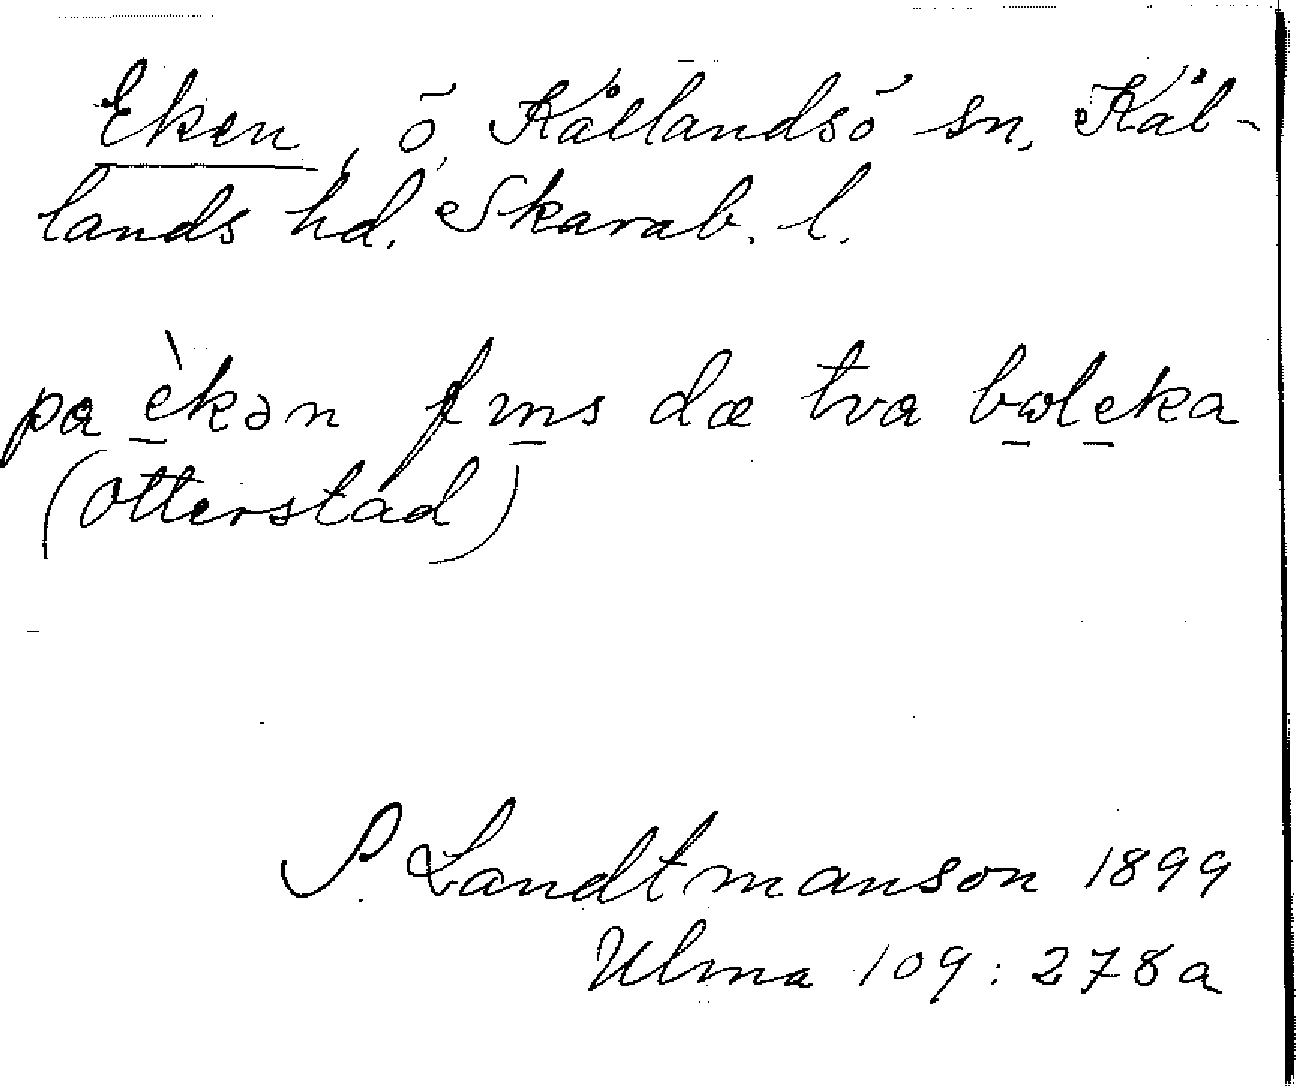 Eken, ö, Kållandsö sn, Kål-
lands hd. Skarab. l.
pa èkən fins dæ tva bωleka
(Otterstad)
S. Landtmanson 1899
Ulma 109: 278a